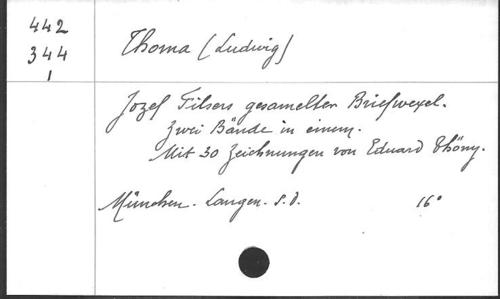 442
344
1
Thoma (Ludwig)
Jozef Filsers gesamelter Briefwexel.
Zwei Bände in einem.
Mit 30 Zeichnungen von Eduard Thöny.
München. Langen. s.d. 16°